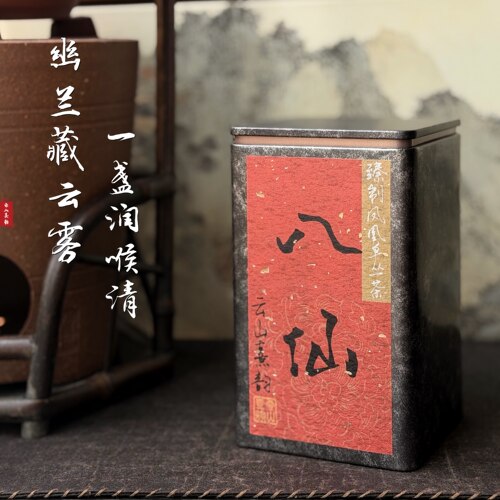 幽兰藏云雾
一盏润喉清
臻制凤凰单丛茶
八仙
云山熹韵